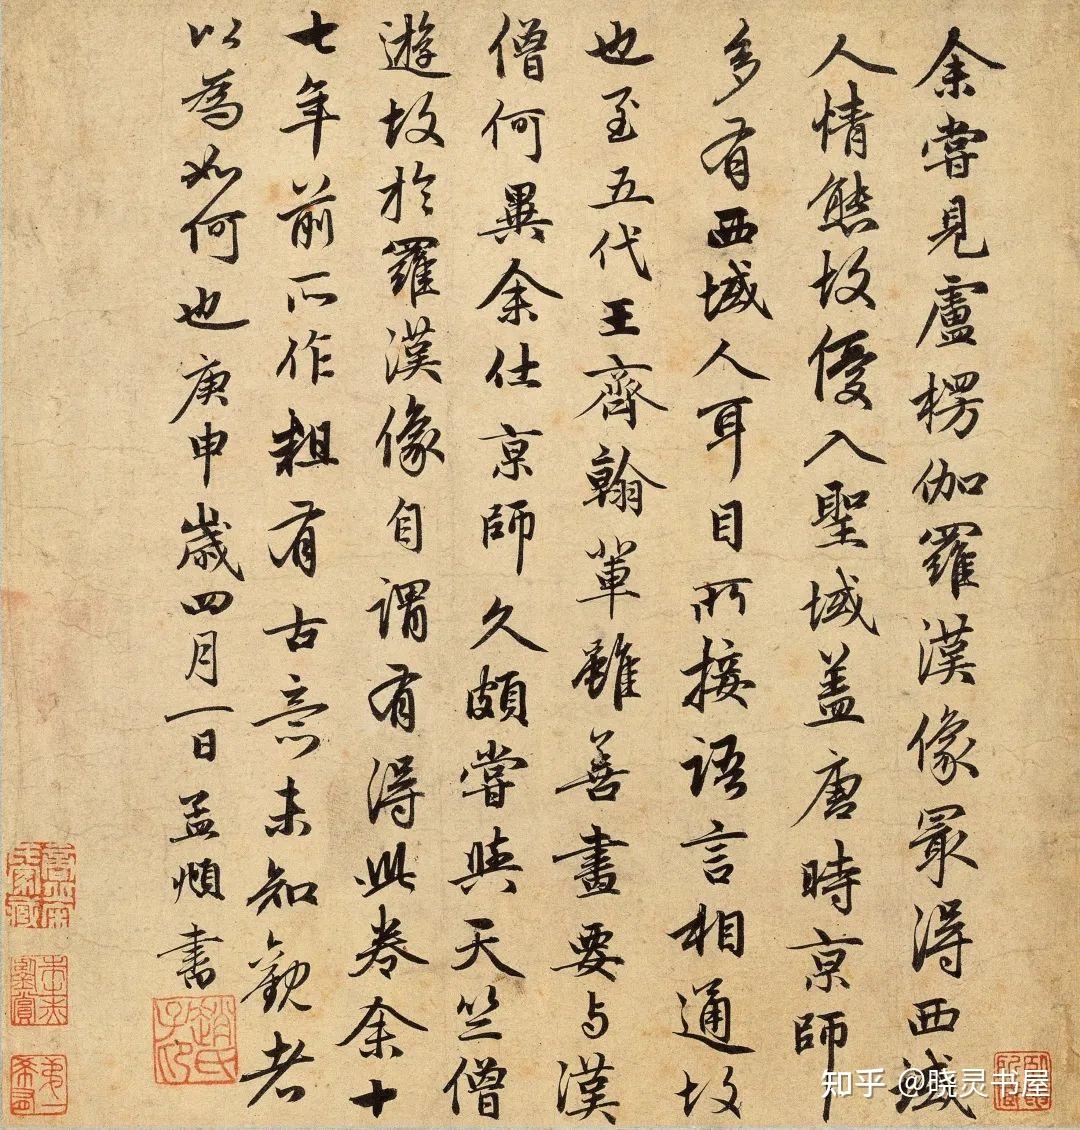 余嘗見盧楞伽羅漢像最得西域
人情態故優入聖域盖唐時京師
多有西域人耳目所接語言相通故
也至五代王齊翰輩雖善畫要与漢
僧何異余仕京師久頗嘗與天竺僧
遊故於羅漢像自謂有得此卷余十
七年前所作粗有古意未知觀者
以為如何也庚申歲四月一日孟頫書
趙氏子印
知乎 @晓灵书屋